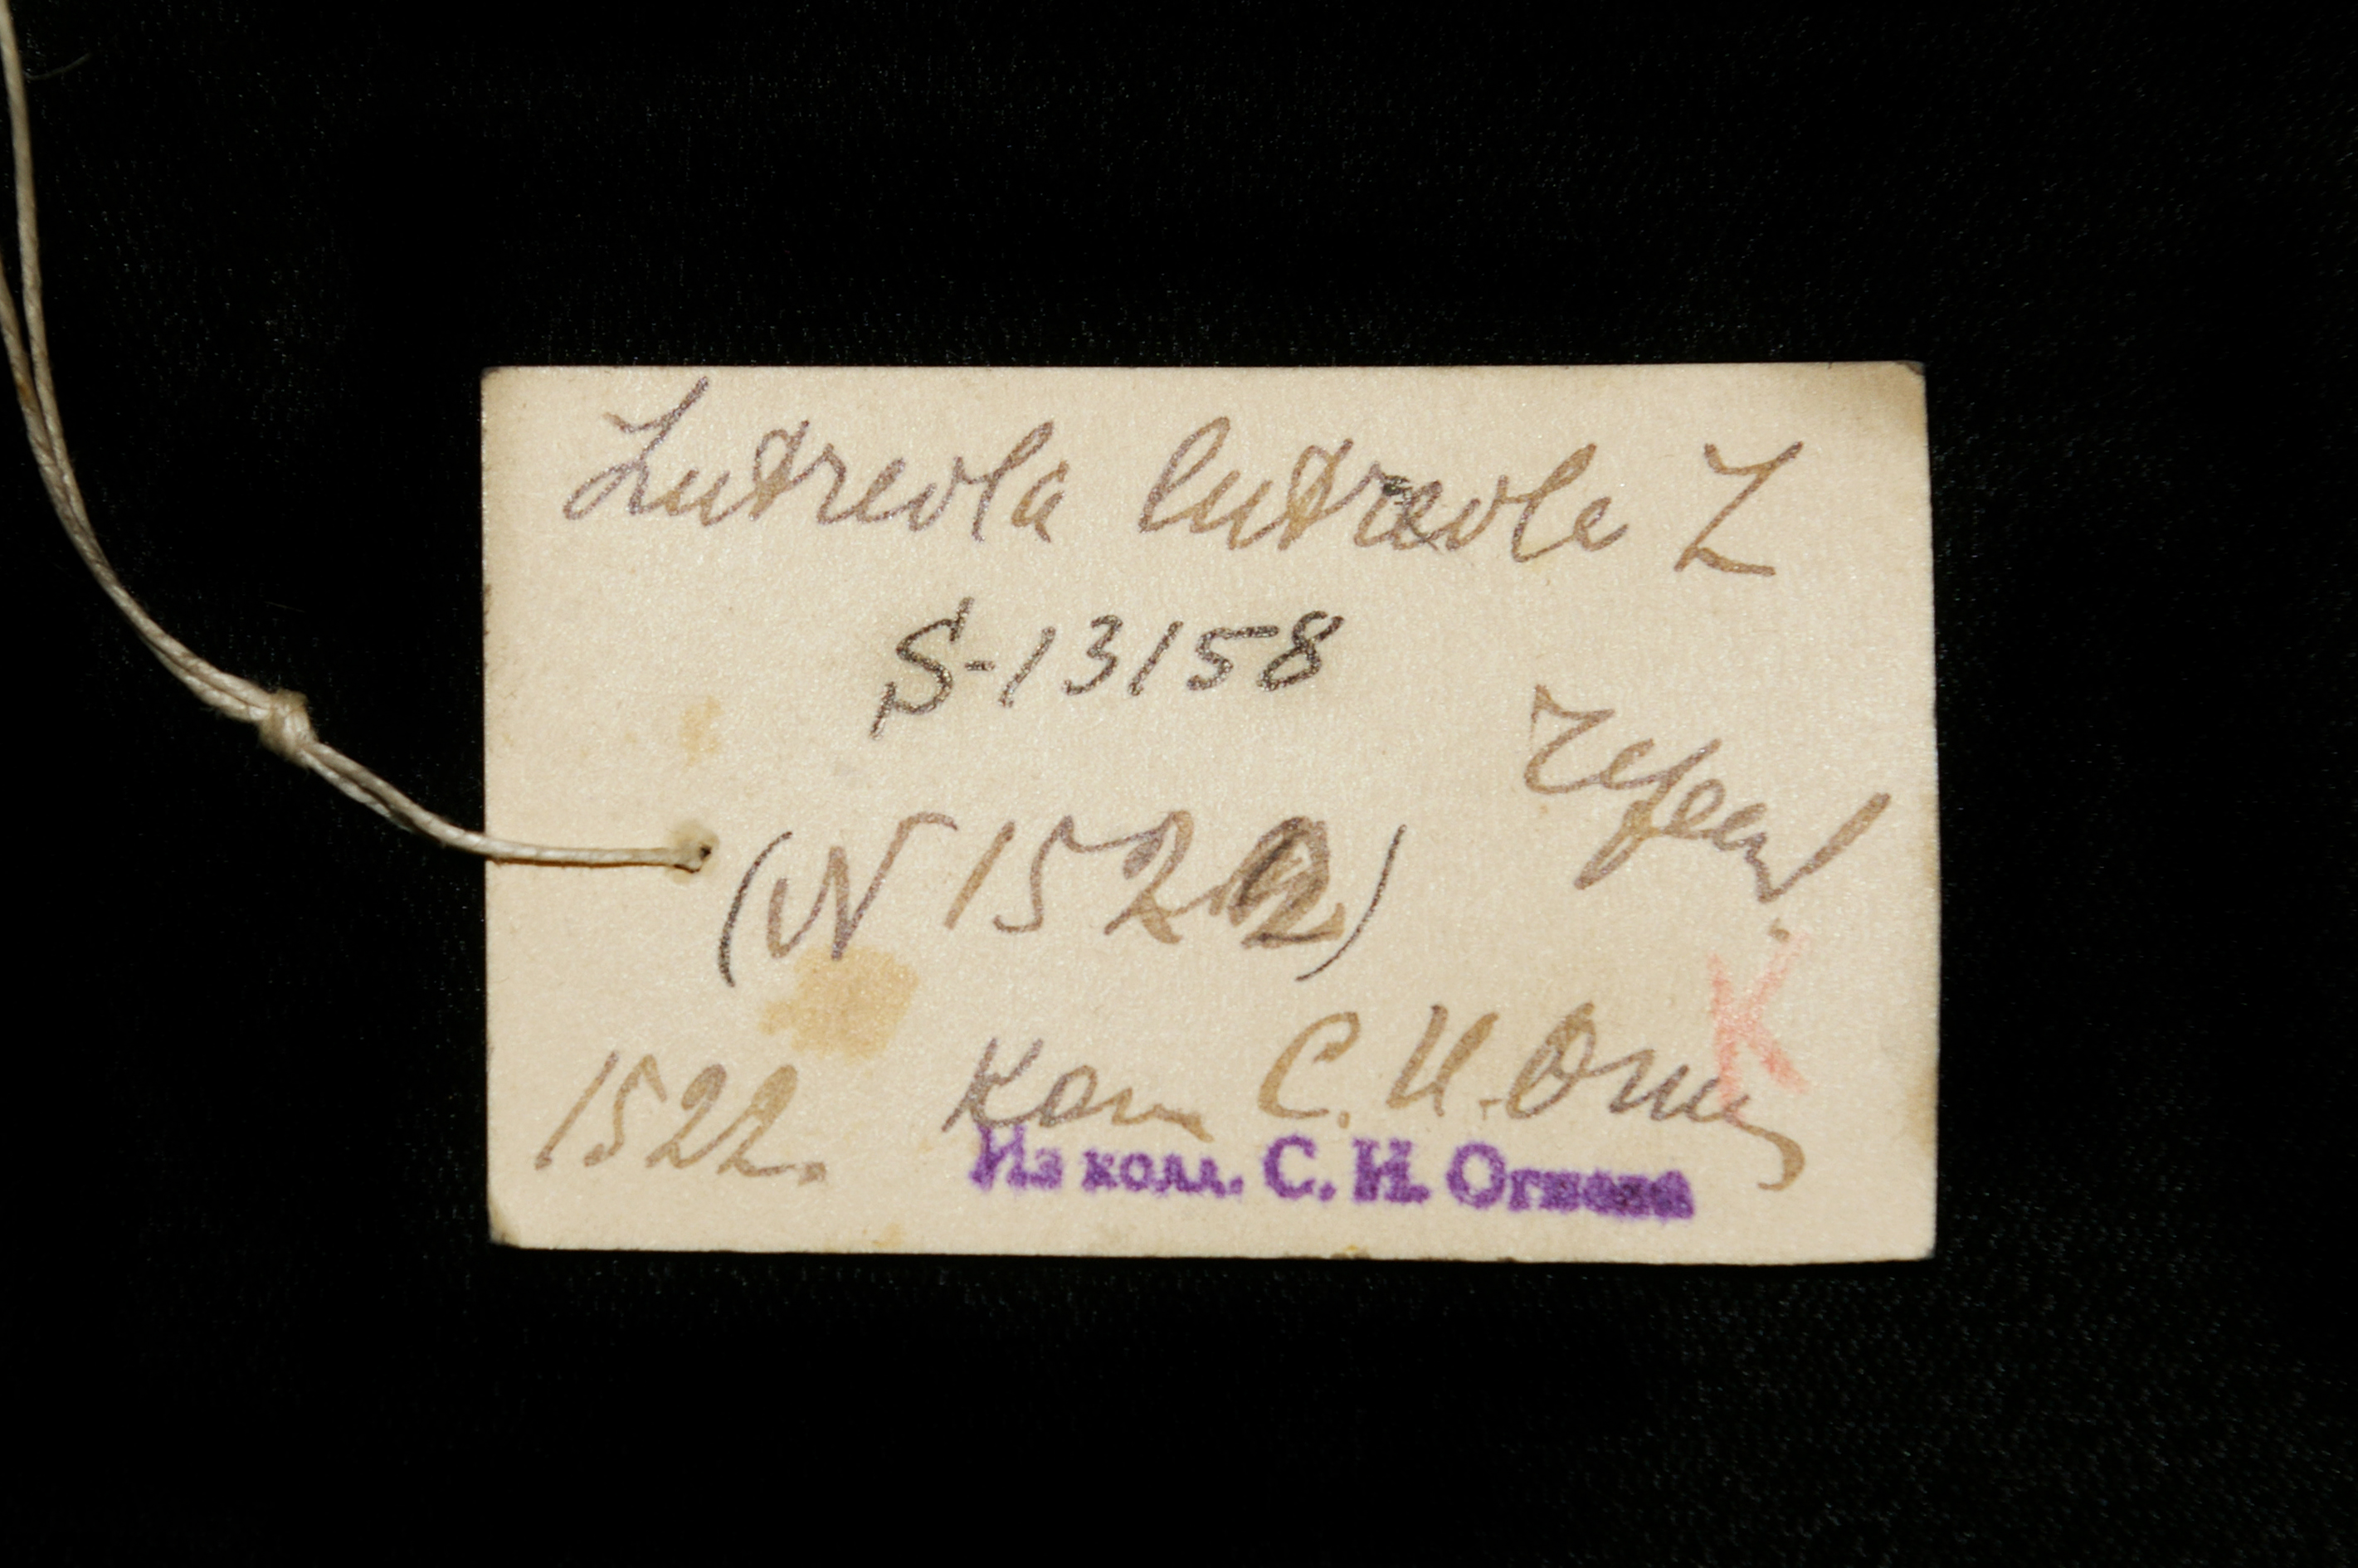 Lutreola lutreola L
S-13158
череп!
(N 1522)
К
1522. Кол С. И. Огнев
Из колл. С. И. Огнева